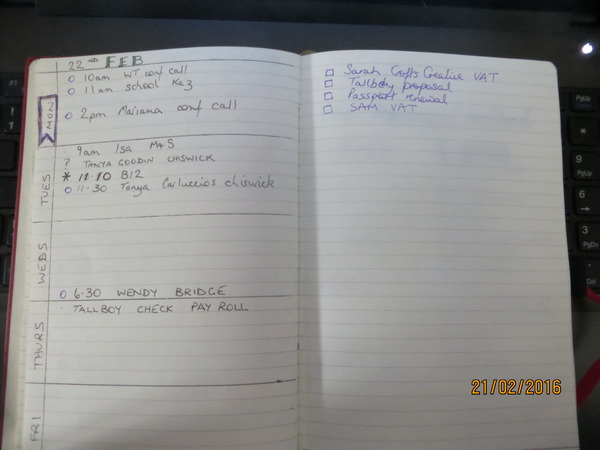 22nd FEB
10am WT conf call
11am school Ks3
MON
2pm Mariana conf call
9am Isa M+S
? TANYA GOODIN CHISWICK
* 11.10 B12
TUES
11.30 Tanya Carluccios chiswick
WEDS
6.30 WENDY BRIDGE
TALLBOY CHECK PAY ROLL
THURS
FRI
Sarah Crofts Creative VAT
Tallboy proposal
Passport renewal
SAM VAT
21/02/2016
PgUp
*
9
PgUp
6
3
PgDn
Del